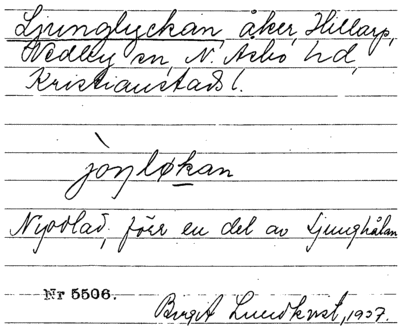 Ljunglyckan, åker, Hillarp,
Vedby sn, N. Åsbo hd,
Kristianstads l.
jòŋløkan
Nyodlad, förr en del av Ljunghålan
Nr 5506.
Birgit Lundkvist, 1937.